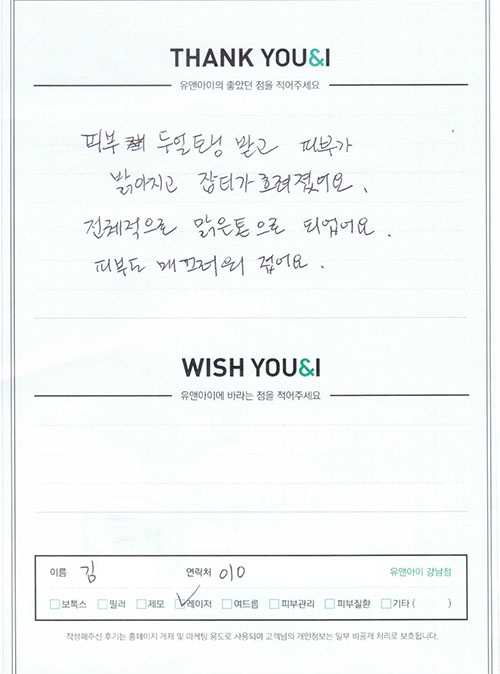 THANK YOU&I
유앤아이의 좋았던 점을 적어주세요
피부 듀얼토닝 받고 피부가
밝아지고 잡티가 흐려졌어요.
전체적으로 맑은톤으로 되었어요.
피부도 매끄러워 졌어요.
WISH YOU&I
유앤아이에 바라는 점을 적어주세요
이름 김 연락처 010 유앤아이 강남점
보톡스 필러 제모 레이저 여드름 피부관리 피부질환 기타 ( )
작성해주신 후기는 홈페이지 게재 및 마케팅 용도로 사용되며 고객님의 개인정보는 일부 비공개 처리로 보호됩니다.